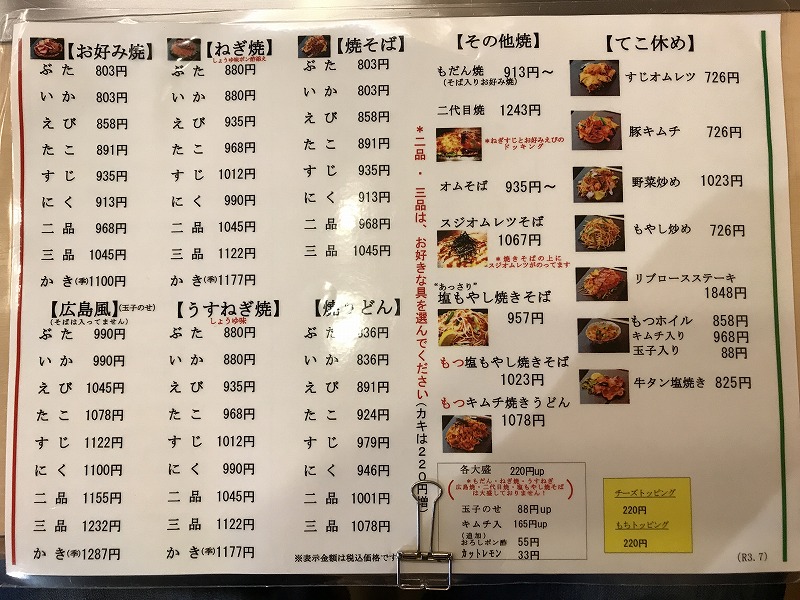 【お好み焼】
ぶた 803円
いか 803円
えび 858円
たこ 891円
すじ 935円
にく 913円
二品 968円
三品 1045円
かき(季)1100円
【ねぎ焼】
しょうゆ味ポン酢添え
ぶた 880円
いか 880円
えび 935円
たこ 968円
すじ 1012円
にく 990円
二品 1045円
三品 1122円
かき(季)1177円
【焼そば】
ぶた 803円
いか 803円
えび 858円
たこ 891円
すじ 935円
にく 913円
二品 968円
三品 1045円
【広島風】(玉子のせ)
(そばは入ってません)
ぶた 990円
いか 990円
えび 1045円
たこ 1078円
すじ 1122円
にく 1100円
二品 1155円
三品 1232円
かき(季)1287円
【うすねぎ焼】
しょうゆ味
ぶた 880円
いか 880円
えび 935円
たこ 968円
すじ 1012円
にく 990円
二品 1045円
三品 1122円
かき(季)1177円
【焼うどん】
ぶた 836円
いか 836円
えび 891円
たこ 924円
すじ 979円
にく 946円
二品 1001円
三品 1078円
※表示金額は税込価格です
*二品・三品は、お好きな具を選んでください(カキは220円増
【その他焼】
もだん焼 913円～
(そば入りお好み焼)
二代目焼 1243円
*ねぎすじとお好みえびの
ドッキング
オムそば 935円～
スジオムレツそば
1067円
*焼きそばの上に
スジオムレツがのってます
"あっさり"
塩もやし焼きそば
957円
もつ塩もやし焼きそば
1023円
もつキムチ焼きうどん
1078円
各大盛 220円up
(*もだん・ねぎ焼・うすねぎ
広島焼・二代目焼・塩もやし焼そば
は大盛しておりません!)
玉子のせ 88円up
キムチ入 165円up
(追加)
おろしポン酢 55円
カットレモン 33円
【てこ休め】
すじオムレツ 726円
豚キムチ 726円
野菜炒め 1023円
もやし炒め 726円
リブロースステーキ
1848円
もつホイル 858円
キムチ入り 968円
玉子入り 88円
牛タン塩焼き 825円
チーズトッピング
220円
もちトッピング
220円
(R3.7)